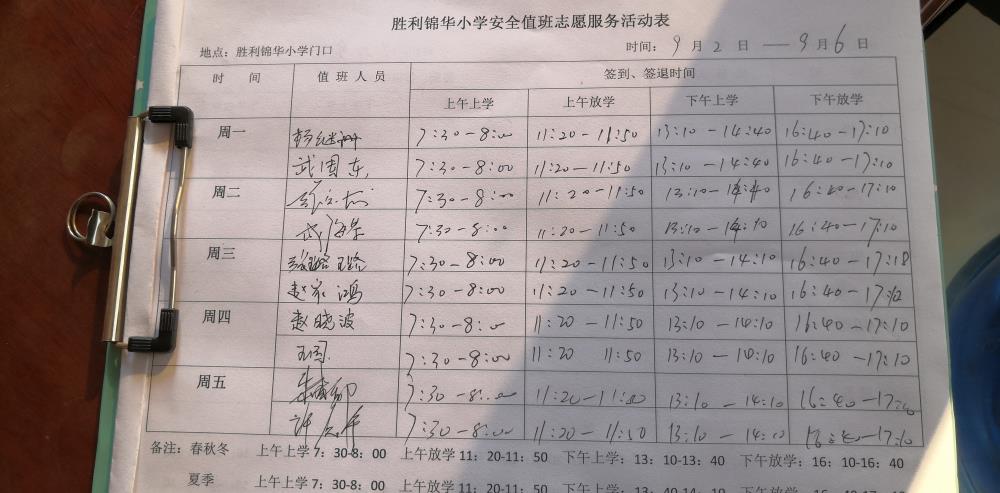 胜利锦华小学安全值班志愿服务活动表
地点：胜利锦华小学门口 时间：9月2日—9月6日
时 间 值 班 人 员 签到、签退时间
上午上学 上午放学 下午上学 下午放学
周一 7:30-8:00 11:20-11:50 13:10-14:40 16:40-17:10
武国东 7:30-8:00 11:20-11:50 13:10-14:40 16:40-17:10
周二 7:30-8:00 11:20-11:50 13:10-14:40 16:40-17:10
武海荣 7:30-8:00 11:20-11:50 13:10-14:10 16:40-17:10
周三 7:30-8:00 11:20-11:50 13:10-14:10 16:40-17:18
赵家鸿 7:30-8:00 11:20-11:50 13:10-14:10 16:40-17:10
周四 赵晓波 7:30-8:00 11:20-11:50 13:10-14:10 16:40-17:10
7:30-8:00 11:20 11:50 13:10-14:10 16:40-17:10
周五 7:30-8:00 11:20-11:50 13:10-14:10 16:40-17:10
7:30-8:00 11:20-11:50 13:10-14:10 16:40-17:10
备注：春秋冬 上午上学 7：30-8：00 上午放学 11：20-11：50 下午上学：13：10-13：40 下午放学：16：10-16：40
夏季 上午上学 7：30-8：00 上午放学 11：20-11：50 下午上学：13：40-14：10